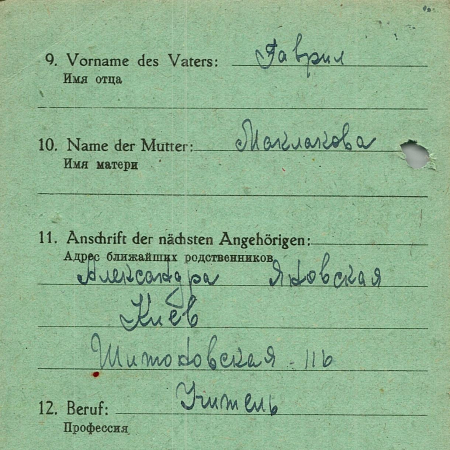 9. Vorname des Vaters: Гаврил
Имя отца
10. Name der Mutter: Маклакова
Имя матери
11. Anschrift der nächsten Angehörigen:
Адрес ближайших родственников
Александра Яновская
Киев
12. Beruf: Учитель
Профессия